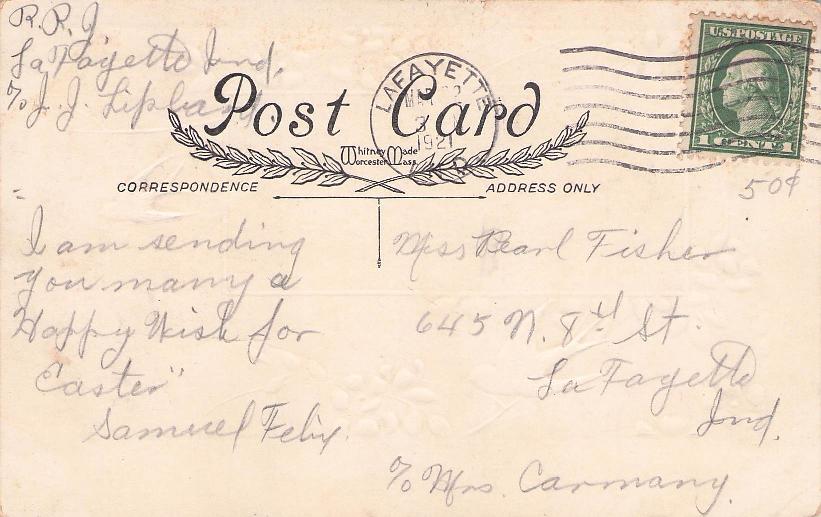 R.R.J
LaFayette Ind.
c/o J. J.
Post Card
Whitney Made
Worcester Mass.
LAFAYETTE
1921
IND.
U.S. POSTAGE
1 CENT 1
50¢
CORRESPONDENCE
ADDRESS ONLY
"I am sending
you many a
Happy Wish for
Easter"
Samuel Felix.
Miss Pearl Fisher
645 N. 8th St.
LaFayette
Ind.
c/o Mrs. Carmany.